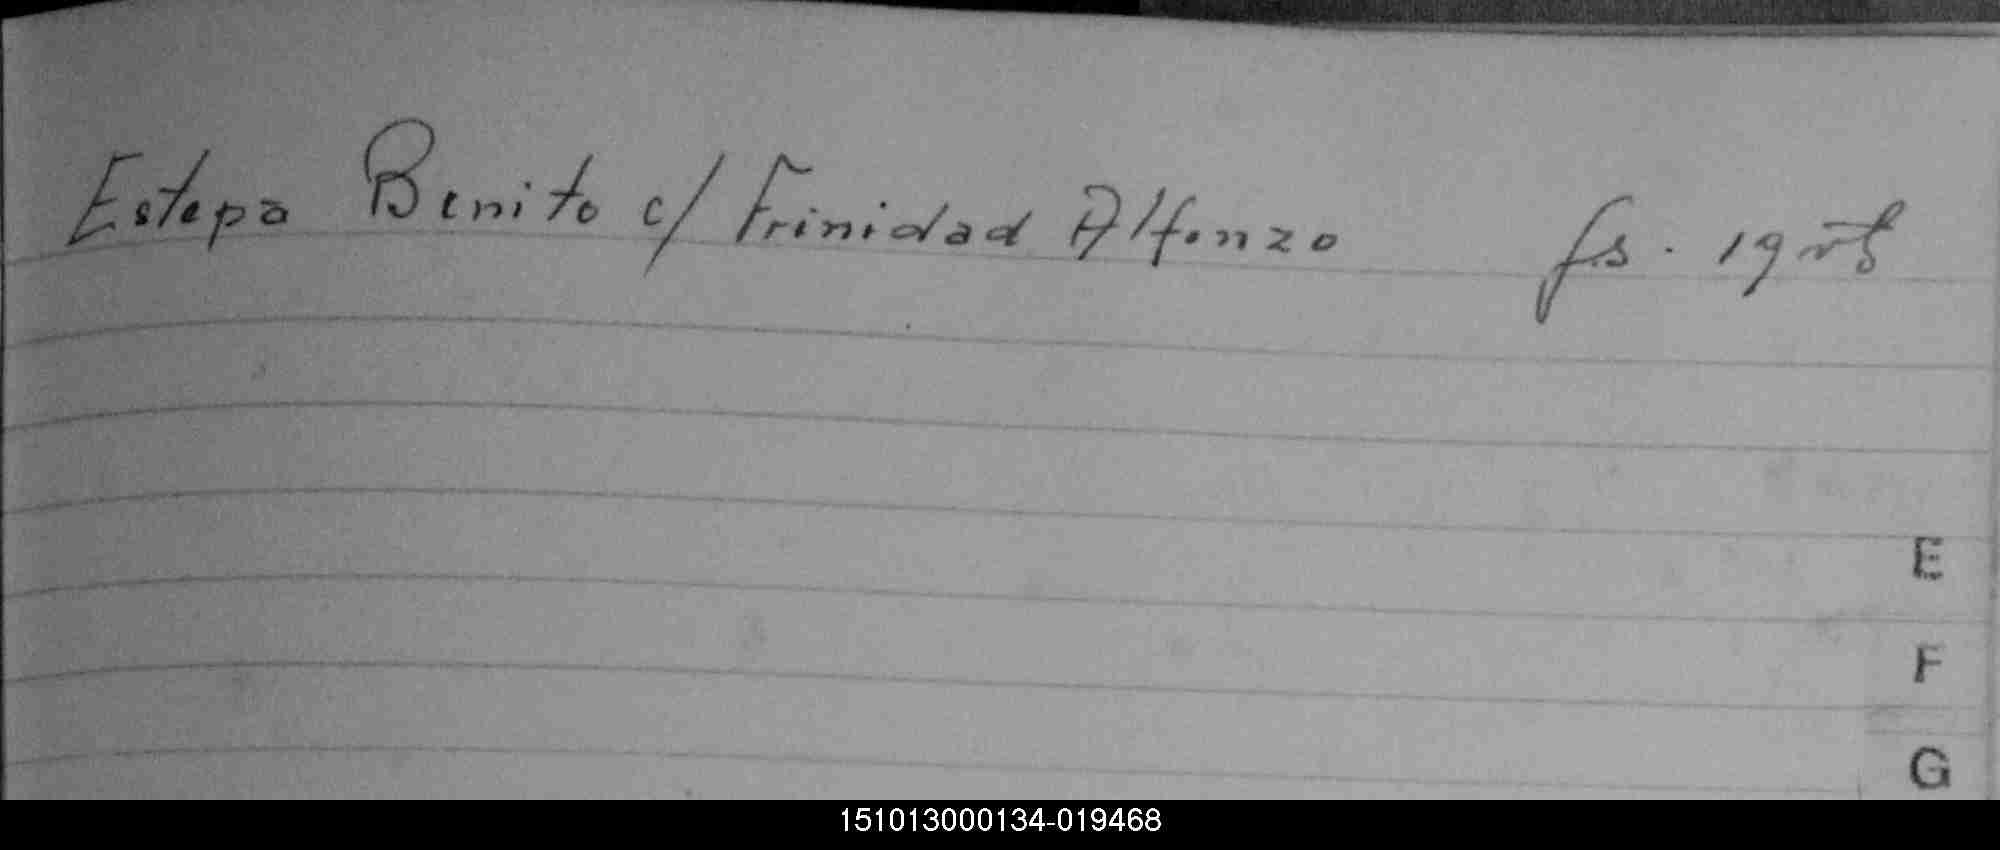 Estepa Benito c/ Trinidad Alfonzo fs. 19 vt
E
F
G
151013000134-019468